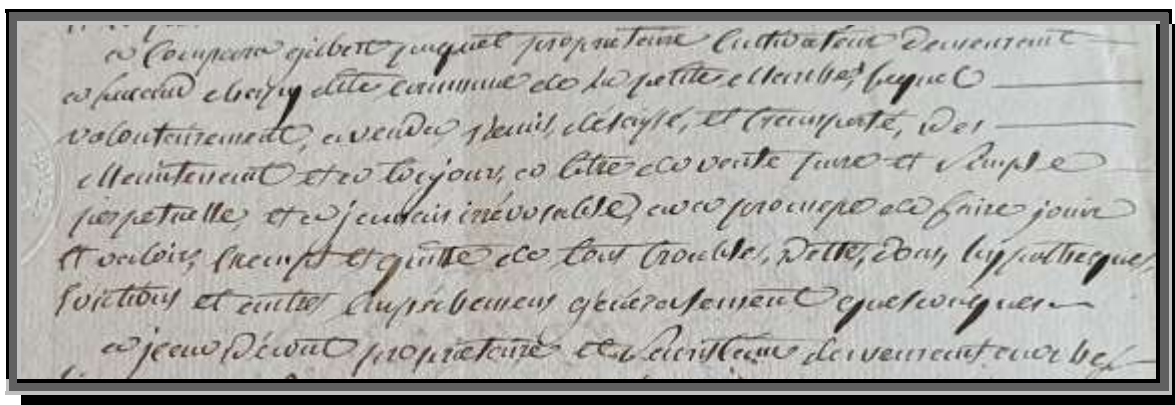 a Comparu gilbert paquet propriétaire Cultivateur demeurant
dite commune de la petite Marche, lequel
volontairement, a vendu, remis, délaissé, et transporté, des
Maintenant et a toujours, a titre de vente pure et Simple
perpetuelle, et a jamais irrévocable, avec promesse de faire jouir
et valoir, Exempt et quitte de tous troubles, Dette, Dons, hypotheques,
Evictions et autres Empêchemens généralement quelconques
a jean propriétaire et demeurant